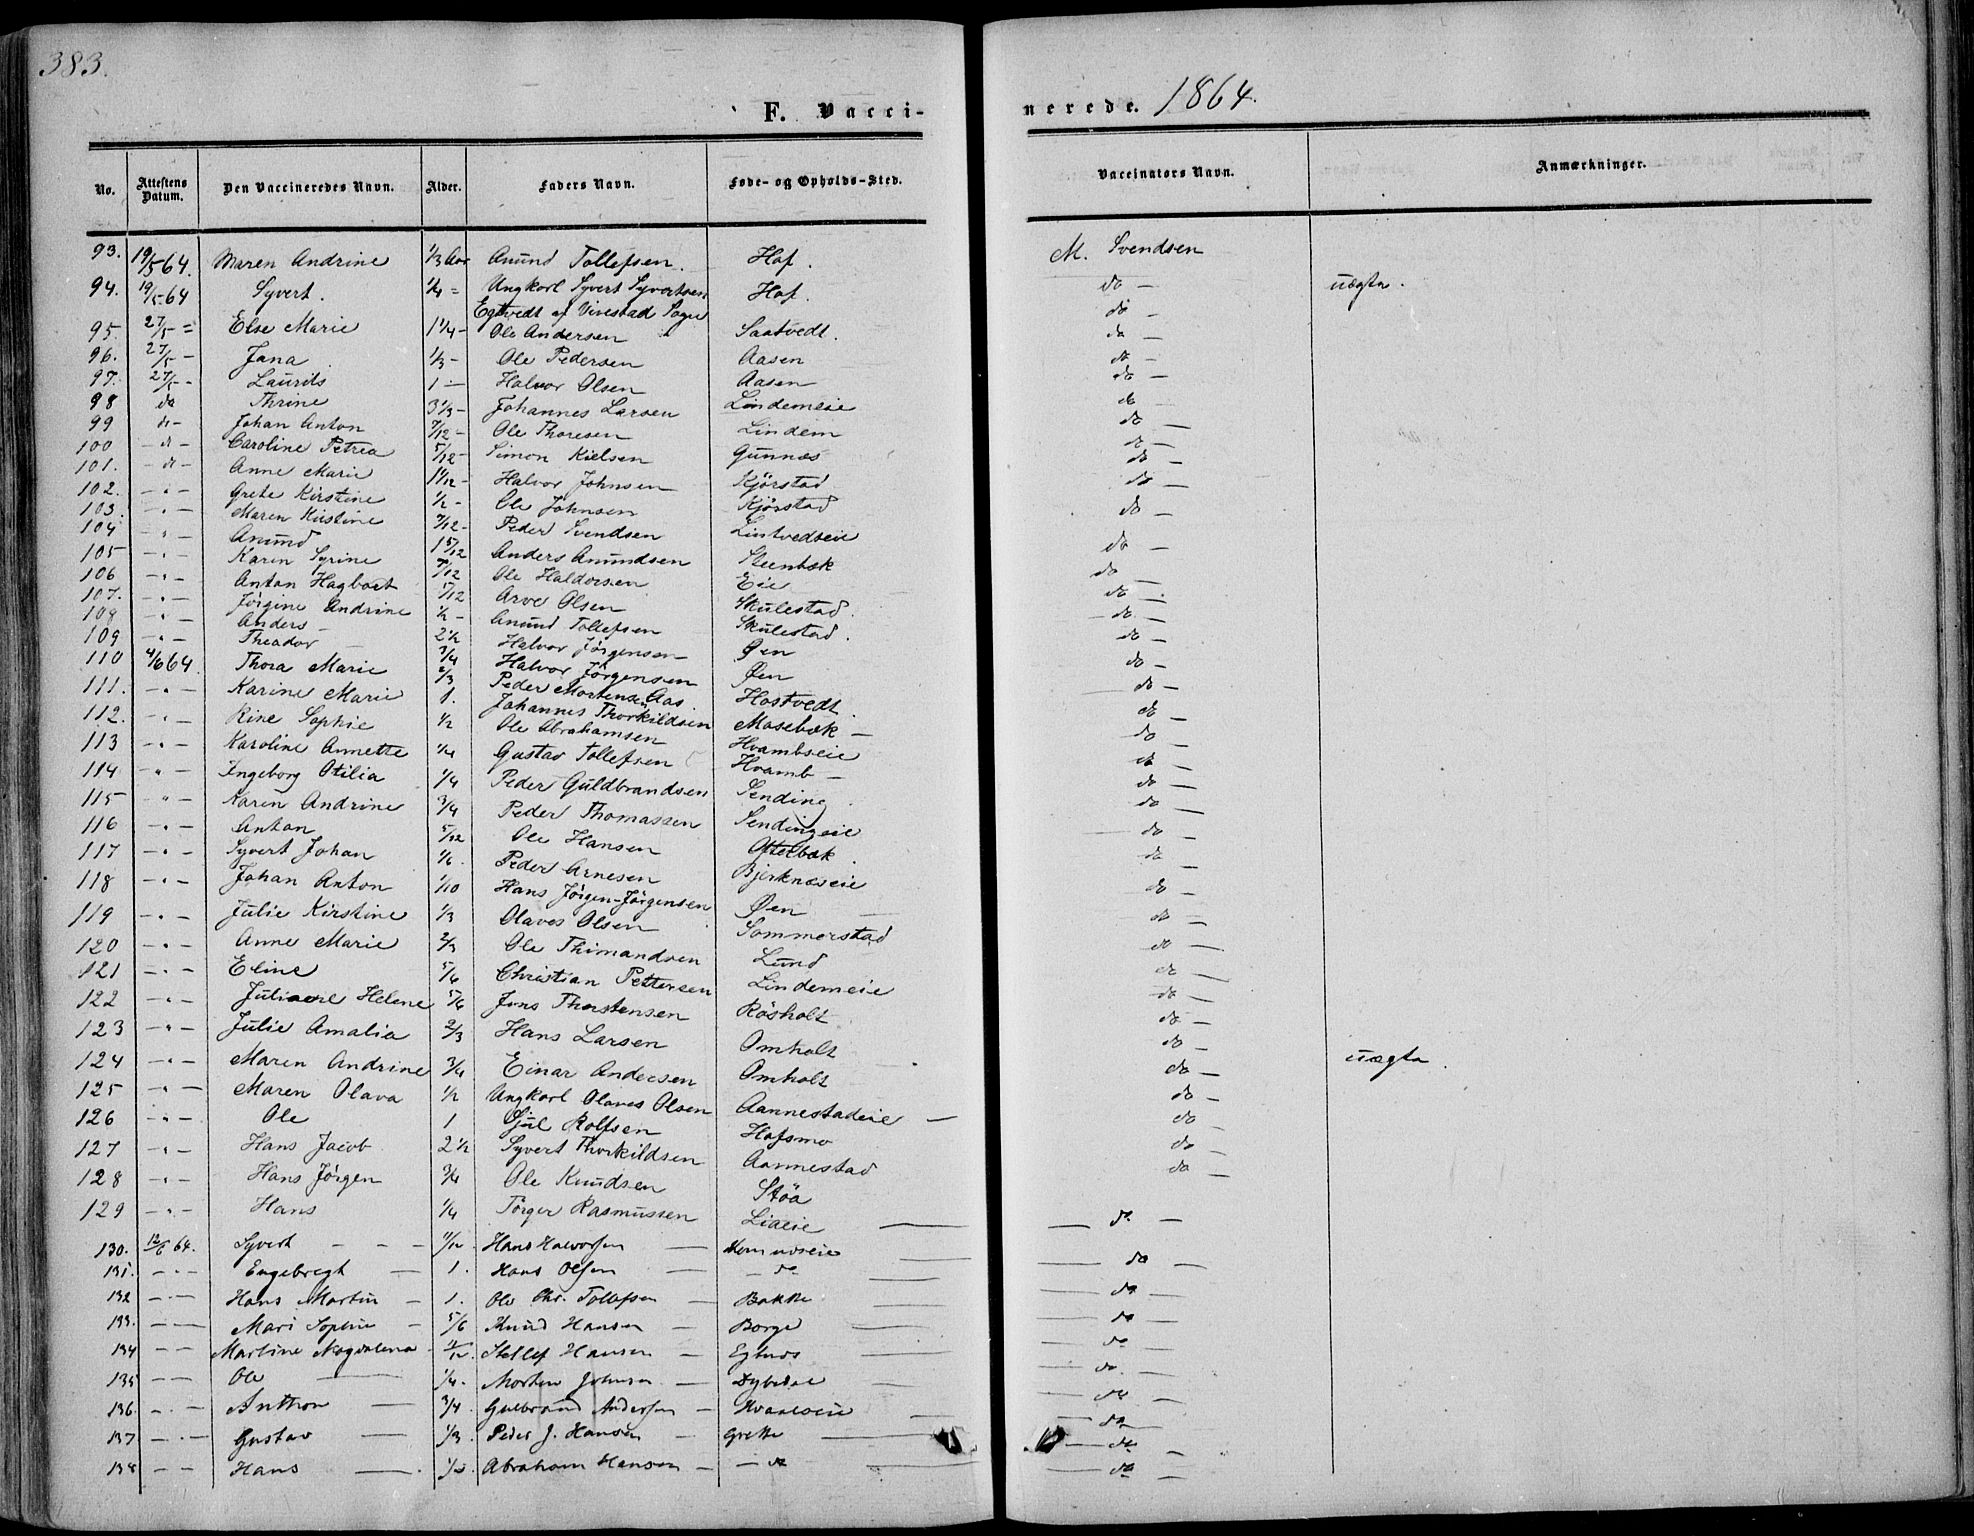 383.
F. Vaccinerede. 1864.
No. Attestens Datum. Den Vaccineredes Navn. Alder. Faders Navn. Føde- og Opholds-Sted. Vaccinators Navn. Anmærkninger.
93. 19/5 64. Maren Andrine 1/3 Aar Anund Tollefsen. Hof. M. Svendsen
94. 19/5 64 Syvert. 1/4 = Ungkarl Syvert Syvertsen Hof. do — uægta.
Egtvedt af Vivestad Sogn do —
95. 27/5 = Else Marie 1 1/4 – Ole Andersen Saatvedt. do —
96. 27/5 – Jana 1/3 – Ole Pedersen Aasen do —
97. 27/5 – Laurits 1 – Halvor Olsen Aasen do —
98 do Thrine 3 1/3 – Johannes Larsen Lindemeie do —
99 do – Johan Anton 7/12 – Ole Thoresen Lindem do —
100 – do – Caroline Petrea 5/12 – Simon Nielsen Gunnæs do —
101. – do – Anne Marie Halvor Johnsen Kjørstad do —
102. – " – Grete Kirstine 1/2 – Ole Johnsen Kjørstad do —
103. – " – Maren Kirstine 7/12 – Peder Svendsen Lintvedseie do —
104 – " – Anund 1 5/12 Anders Anundsen Steenbæk do —
105 – " – Karen Syrine 7/12 Ole Haldorsen Eie do —
106 – " – Anton Hagbart 5/12 Arve Olsen Skulestad. do —
107. – " – Jørgine Andrine 1/2 – Anund Tollefsen Skulestad. do —
108 – " – Anders – 2 1/2 Halvor Jørgensen Øen do —
109 – " – Theodor — 3/4 Halvor Jørgensen Øen do —
110 4/6 64. Thora Marie 2/3 Peder Mortens. Aas. Hostvedt. do —
111. – " – Karine Marie 1. Johannes Thorkildsen Masebæk — do —
112. – " – Rine Sophie 1/2 Ole Abrahamsen Hvambseie do —
113 – " – Karoline Annette 1/4 Gustav Tollefsen Hvamb — do —
114 – " – Ingeborg Otilia 1/4 Peder Guldbrandsen Sending do —
115 – " – Karen Andrine 3/4 Peder Thomassen Sendingeie do —
116 – " – Anton 5/12 Ole Hansen Ottelbæk. do —
117 – " – Syvert Johan 1/6. Peder Arnesen Bjerknæseie do —
118 – " – Johan Anton 1/10 Hans Jørgen-Jørgensen Øen do —
119 – " – Julie Kirstine 1/3 Olaves Olsen Sommerstad do —
120 – " – Anne Marie 2/3 Ole Thimandsen Lund do —
121 – " – Eline 5/6 Christian Pettersen Lindemeie do —
122 – " – Juliane Helene 5/6 Jens Thorstensen Røsholt do —
123 – " – Julie Amalia 2/3 Hans Larsen Omholt do —
124 – " – Maren Andrine 3/4 Einar Andersen Omholt do —
125 – " – Maren Olava 1/2 Ungkarl Olaves Olsen Aannestadeie — do — uægta.
126 – " – Ole 1 Gjul Rolfsen Hafsmo do —
127 – " – Hans Jacob 2 1/2 Syvert Thorkildsen Aannestad do —
128 – " – Hans Jørgen 3/4 Ole Knudsen Støa do —
129 – " – Hans 1/4 Tørger Rasmussen Liaeie — do —
130. 12/6 64. Syvert – – – Hans Halvorsen — do —
131. – " – Engebregt — 1. Hans Olsen — – do — do —
132 – " – Hans Martin – 1. Ole Chr. Tollefsen — Bakke — do —
133. – – Mari Sophie – 5/6 Knud Hansen – Borge — do —
134 – – Martine Magdalena – Stellef Hansen – — do —
135 – – Ole — 1/4. Morten Johnsen — Dybedal — do —
136. – . – Anthon — 3/4. Gulbrand Andersen – Hvaleseie — do —
137 – . – Gustav — 1/3. Peder J. Hansen – Grette — do —
138 – – Hans —. Abraham Hansen – – do — do —